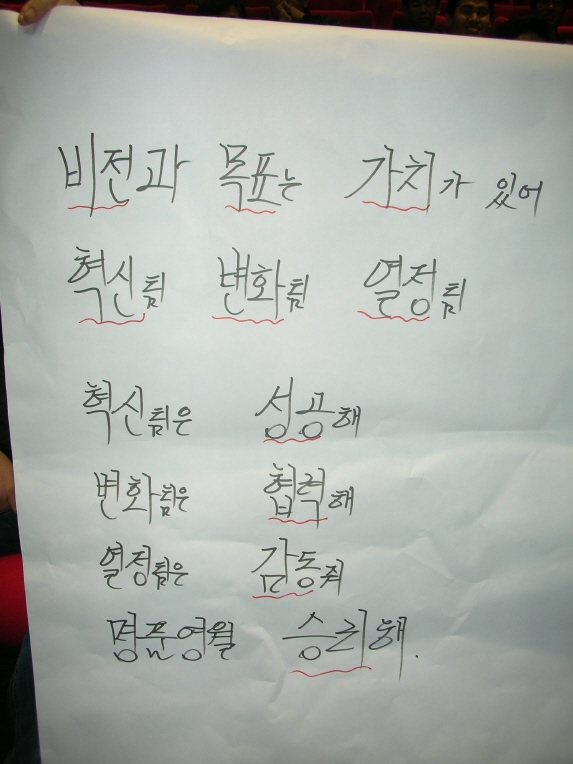 비전과 목표는 가치가 있어
혁신팀 변화팀 열정팀
혁신팀은 성공해
변화팀은 협력해
열정팀은 감동줘
명품영월 승리해.